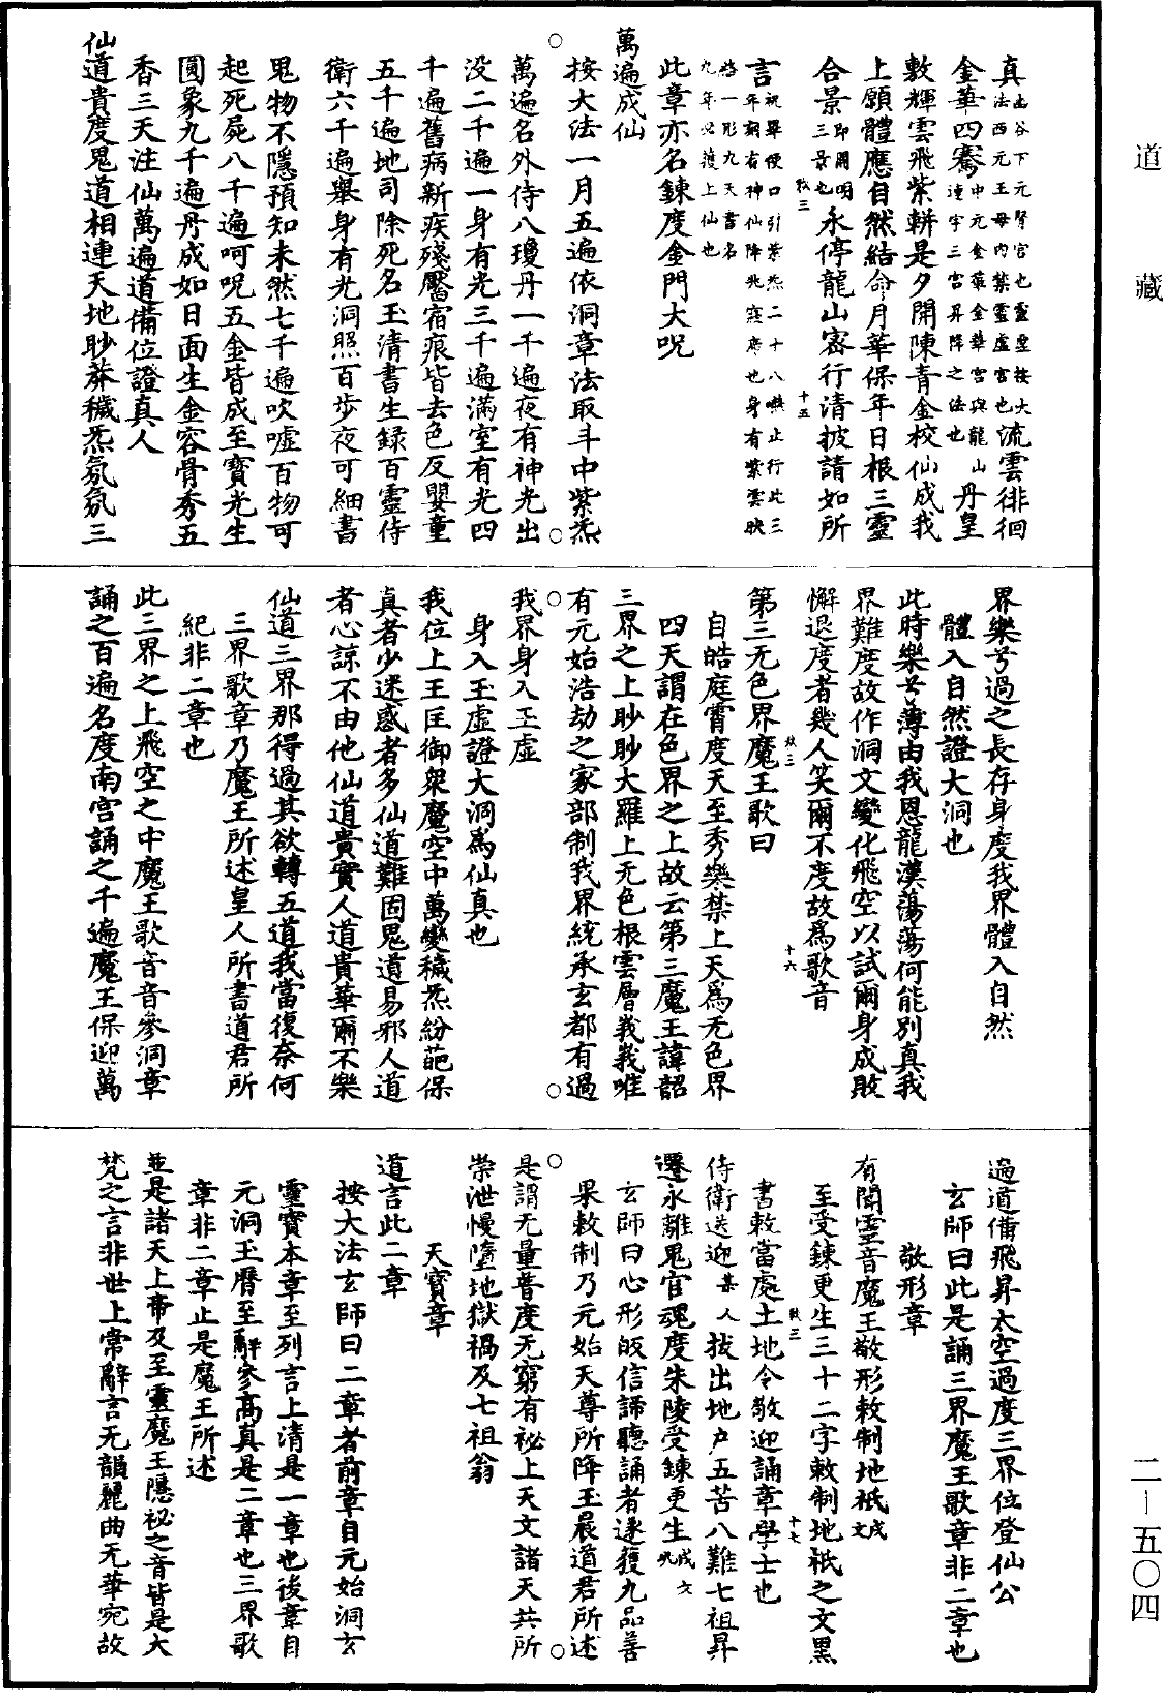 道藏
真 幽谷下元腎宮也靈虛按大
法西元王母內禁靈虛宮也 流雲徘徊
金華四騫 中元金華金華宮與龍山
連字三宮昇降之法也 丹皇
敷輝雲飛紫軿是夕開陳青金校仙成我
上願體應自然結命月華保年日根三靈
合景 即開明
三景也 永停龍山密行清披請如所
言 祝畢便口引紫炁二十八嚥止行此三
年朝有神仙降此
九年必獲上仙也
此章亦名鍊度金門大呪
萬遍成仙
按大法一月五遍依洞章法取斗中紫炁
萬遍名外侍八瓊丹一千遍夜有神光出
沒二千遍一身有光三千遍滿室有光四
千遍舊病新疾殘靨宿痕皆去色反嬰童
五千遍地司除死名玉清書生錄百靈侍
衛六千遍舉身有光洞照百步夜可細書
鬼物不隱預知未然七千遍吹噓百物可
起死屍八千遍呵呪五金皆成至寶光生
圓象九千遍丹成如日面生金容骨秀五
香三天注仙萬遍道備位證真人
仙道貴度鬼道相連天地眇莽穢炁氛氛三
界樂兮過之長存身度我界體入自然
體入自然證大洞也
此時樂兮薄由我恩龍漢蕩蕩何能別真我
界難度故作洞文變化飛空以試爾身成敗
懈退度者幾人笑爾不度故為歌音
第三无色界魔王歌曰
自皓庭霄度天至秀樂禁上天為无色界
四天謂在色界之上故云第三魔王諱韶
三界之上眇眇大羅上无色根雲層峩峩唯
有元始浩劫之家部制我界統承玄都有過
我界身入玉虛
身入玉虛證大洞為仙真也
我位上王匡御眾魔空中萬變穢炁紛葩保
真者少迷惑者多仙道難固鬼道易邪人道
者心諒不由他仙道貴實人道貴華爾不樂
仙道三界那得過其欲轉五道我當復奈何
三界歌章乃魔王所述皇人所書道君所
紀非二章也
此三界之上飛空之中魔王歌音音參洞章
誦之百遍名度南宮誦之千遍魔王保迎萬
遍道備飛昇太空過度三界位登仙公
玄師曰此是誦三界魔王歌章非二章也
敬形章
有聞靈音魔王敬形敕制地祇
至受鍊更生三十二字敕制地祇之文黑
書敕當處土地令敬迎誦章學士也
侍衛送迎 某人 拔出地户五苦八難七祖昇
遷永離鬼官魂度朱陵受鍊更生
玄師曰心形皈信諦聽誦者遂獲九品善
果敕制乃元始天尊所降玉晨道君所述
是謂无量普度无窮有祕上天文諸天共所
崇泄慢墮地獄禍及七祖翁
天寶章
道言此二章
按大法玄師曰二章者前章自元始洞玄
靈寶本章至列言上清是一章也後章自
元洞玉曆至辭參高真是二章也三界歌
章非二章止是魔王所述
並是諸天上帝及至靈魔王隱祕之音皆是大
梵之言非世上常辭言无韻麗曲无華宛故
二—五〇四